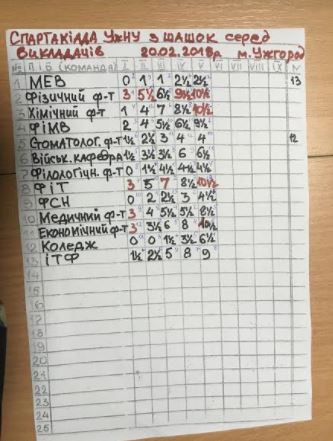 СПАРТАКІАДА УЖНУ З ШАШОК СЕРЕД
ВИКЛАДАЧІВ 20.02.2018р м.УЖГОРОД
№ ПІБ (КОМАНДА) I II III IV V VI VII VIII IX N
1 МЕВ 0 1 1 2½ 2½ 13
2 Фізичний ф-т 3 5½ 6½ 9½ 10½
3 Хімічний ф-т 1 4 7 8½ 10½
4 ФІМВ 2 4 5½ 6½ 9½
5 Стоматолог. ф-т 1½ 2½ 3 4 4 12
6 Військ. кафедра 1½ 3½ 3½ 6 6½
7 Філологічн. ф-т 0 1½ 4½ 4½ 4½
8 ФІТ 3 5 7 8½ 10½
9 ФСН 0 2 2½ 3 4½
10 Медичний ф-т 3 4 5½ 5½ 8½
11 Економічний ф-т 3 3½ 6 8 10½
12 Коледж 0 0 1½ 3½ 6½
13 ІТФ 1½ 2½ 5 8 9
14
15
16
17
18
19
20
21
22
23
24
25